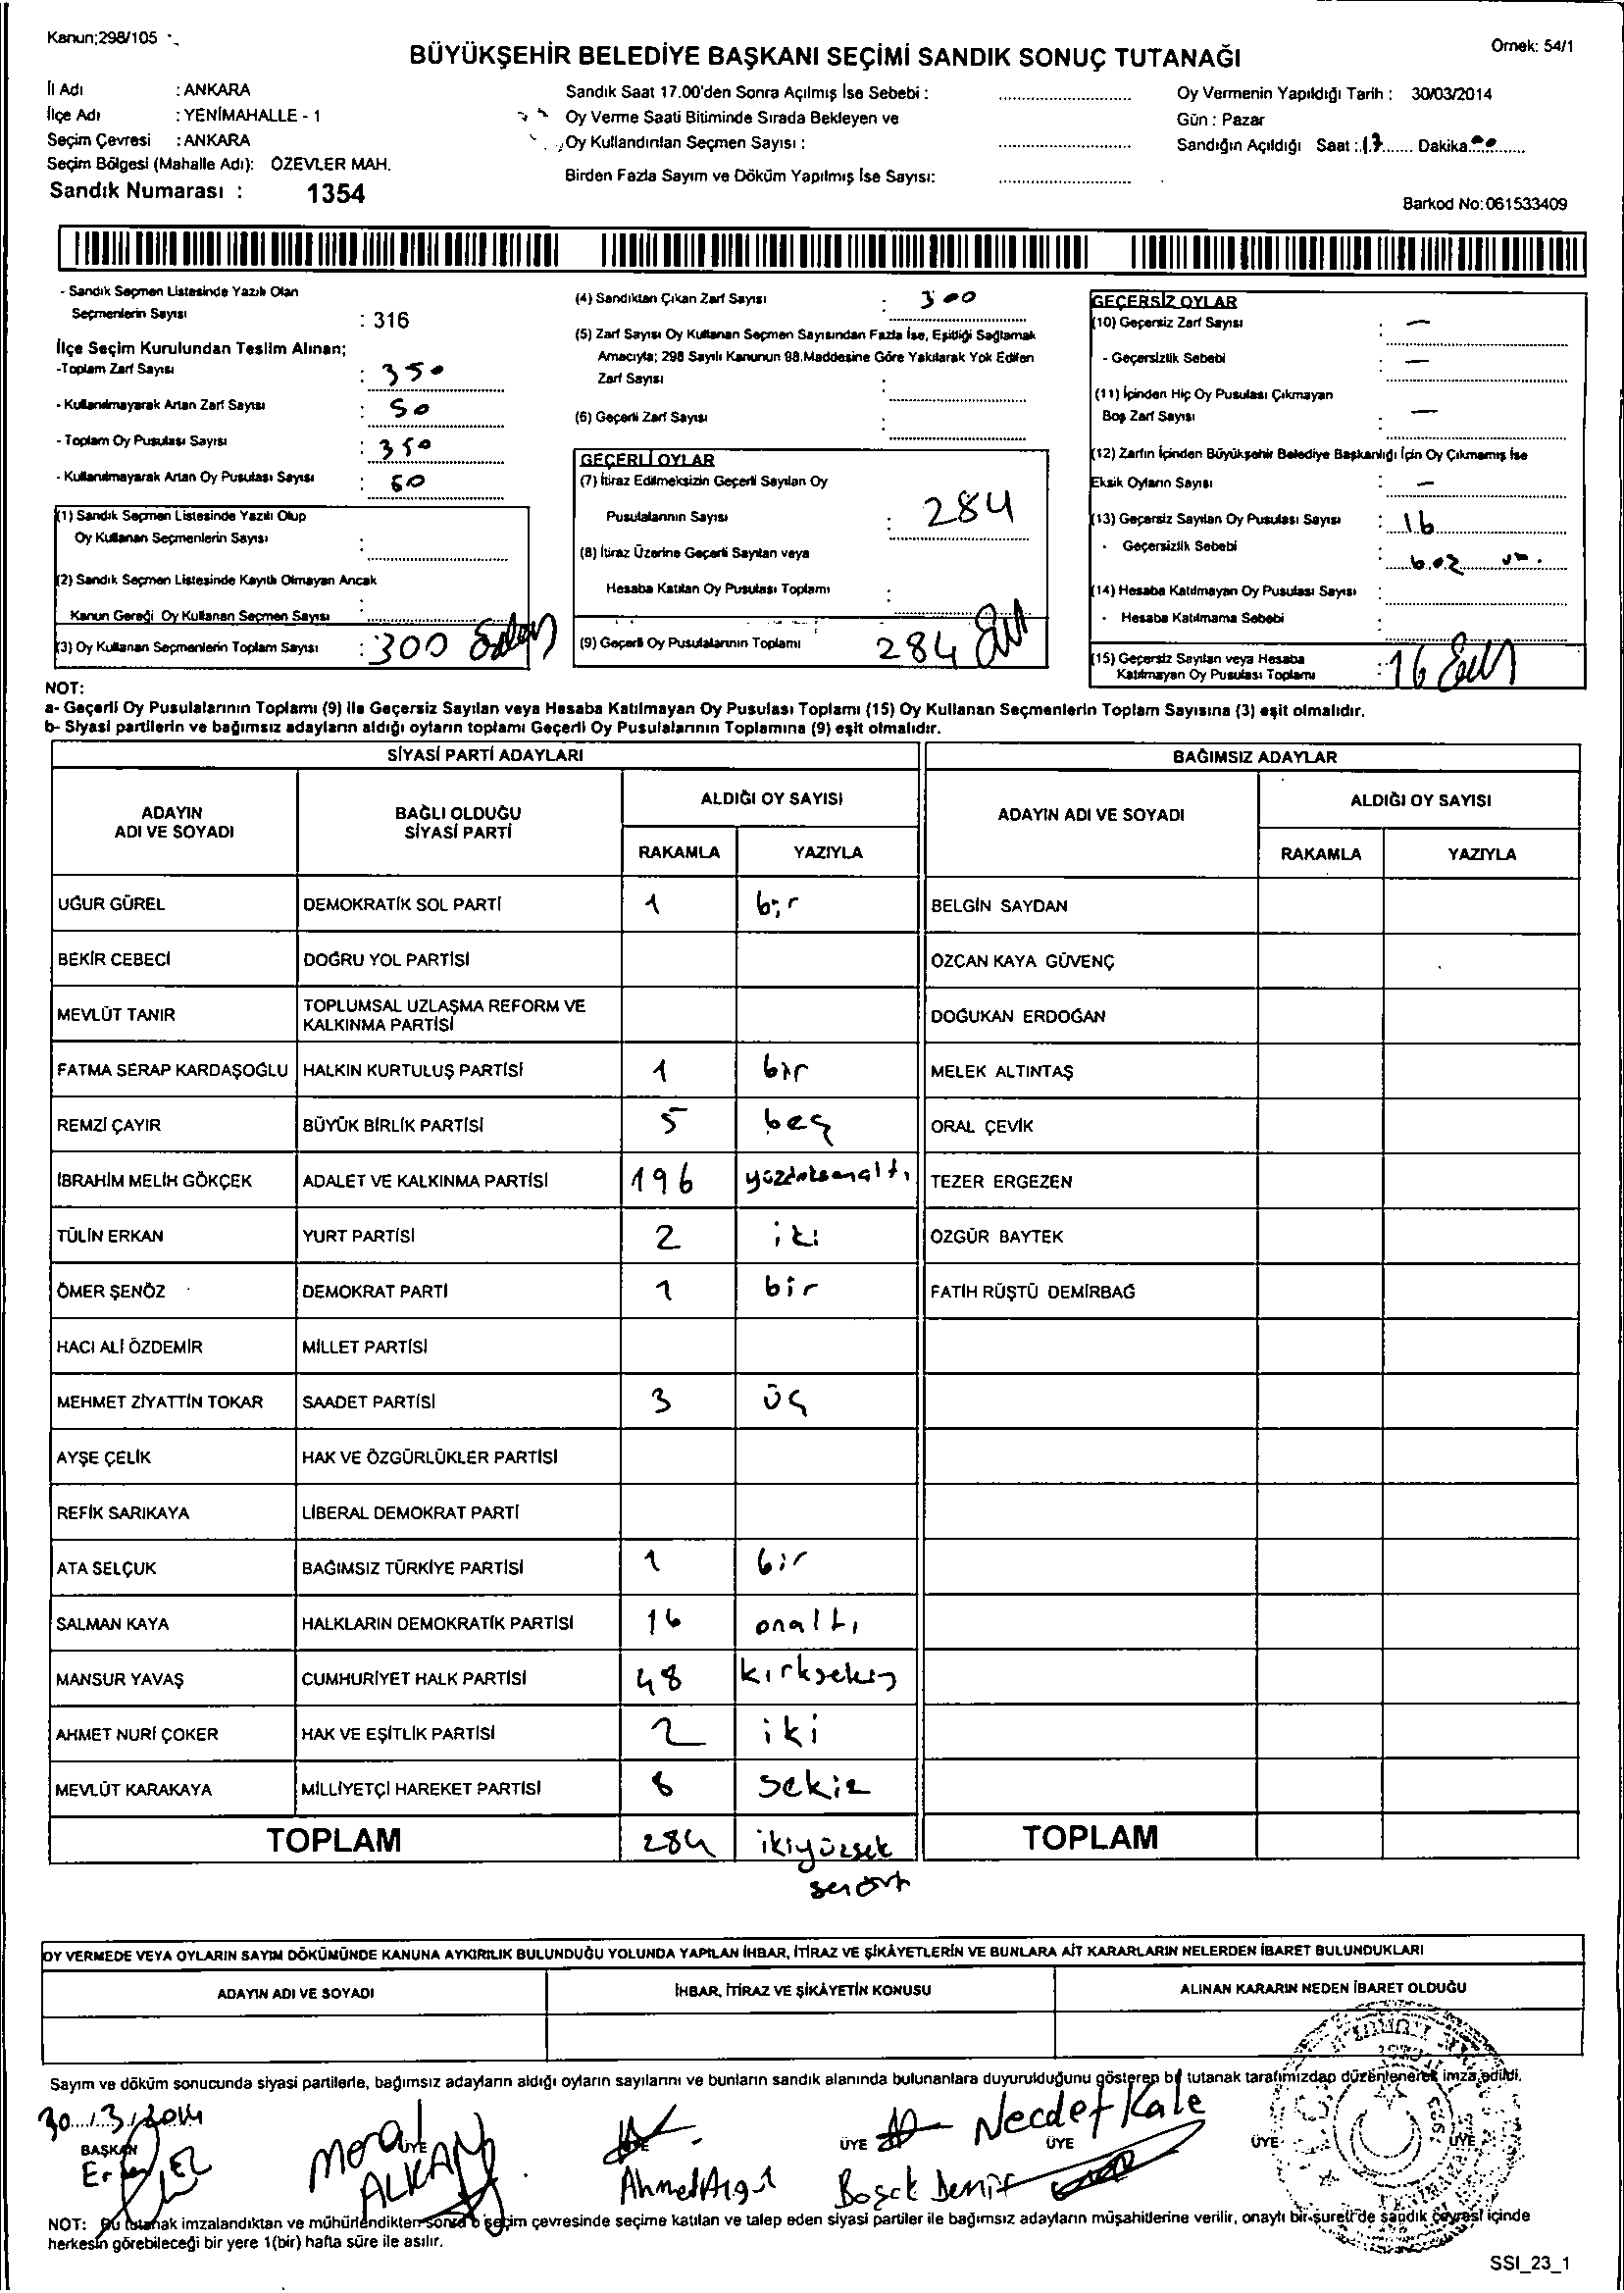 Kanun;298/105
Örnek: 54/1
BÜYÜKŞEHİR BELEDİYE BAŞKANI SEÇİMİ SANDIK SONUÇ TUTANAĞI
İl Adı : ANKARA
İlçe Adı : YENİMAHALLE - 1
Seçim Çevresi : ANKARA
Seçim Bölgesi (Mahalle Adı): ÖZEVLER MAH.
Sandık Numarası : 1354
Sandık Saat 17.00'den Sonra Açılmış İse Sebebi :
Oy Verme Saati Bitiminde Sırada Bekleyen ve
Oy Kullandırılan Seçmen Sayısı :
Birden Fazla Sayım ve Döküm Yapılmış İse Sayısı:
Oy Vermenin Yapıldığı Tarih : 30/03/2014
Gün : Pazar
Sandığın Açıldığı Saat : 17 Dakika 00
Barkod No:061533409
- Sandık Seçmen Listesinde Yazılı Olan
Seçmenlerin Sayısı : 316
İlçe Seçim Kurulundan Teslim Alınan;
-Toplam Zarf Sayısı : 350
- Kullanılmayarak Artan Zarf Sayısı : 50
- Toplam Oy Pusulası Sayısı : 350
- Kullanılmayarak Artan Oy Pusulası Sayısı : 50
(1) Sandık Seçmen Listesinde Yazılı Olup
Oy Kullanan Seçmenlerin Sayısı :
(2) Sandık Seçmen Listesinde Kayıtlı Olmayan Ancak
Kanun Gereği Oy Kullanan Seçmen Sayısı :
(3) Oy Kullanan Seçmenlerin Toplam Sayısı : 300
(4) Sandıktan Çıkan Zarf Sayısı : 300
(5) Zarf Sayısı Oy Kullanan Seçmen Sayısından Fazla İse, Eşitliği Sağlamak
Amacıyla; 298 Sayılı Kanunun 98.Maddesine Göre Yakılarak Yok Edilen
Zarf Sayısı :
(6) Geçerli Zarf Sayısı :
GEÇERLİ OYLAR
(7) İtiraz Edilmeksizin Geçerli Sayılan Oy
Pusulalarının Sayısı : 284
(8) İtiraz Üzerine Geçerli Sayılan veya
Hesaba Katılan Oy Pusulası Toplamı :
(9) Geçerli Oy Pusulalarının Toplamı 284
GEÇERSİZ OYLAR
(10) Geçersiz Zarf Sayısı : —
- Geçersizlik Sebebi : —
(11) İçinden Hiç Oy Pusulası Çıkmayan
Boş Zarf Sayısı : —
(12) Zarfın İçinden Büyükşehir Belediye Başkanlığı İçin Oy Çıkmamış İse
Eksik Oyların Sayısı : —
(13) Geçersiz Sayılan Oy Pusulası Sayısı : 16
- Geçersizlik Sebebi :
(14) Hesaba Katılmayan Oy Pusulası Sayısı :
- Hesaba Katılmama Sebebi :
(15) Geçersiz Sayılan veya Hesaba
Katılmayan Oy Pusulası Toplamı : 16
NOT:
a- Geçerli Oy Pusulalarının Toplamı (9) ile Geçersiz Sayılan veya Hesaba Katılmayan Oy Pusulası Toplamı (15) Oy Kullanan Seçmenlerin Toplam Sayısına (3) eşit olmalıdır.
b- Siyasi partilerin ve bağımsız adayların aldığı oyların toplamı Geçerli Oy Pusulalarının Toplamına (9) eşit olmalıdır.
SİYASİ PARTİ ADAYLARI BAĞIMSIZ ADAYLAR
ADAYIN ADI VE SOYADI BAĞLI OLDUĞU SİYASİ PARTİ ALDIĞI OY SAYISI ADAYIN ADI VE SOYADI ALDIĞI OY SAYISI
RAKAMLA YAZIYLA RAKAMLA YAZIYLA
UĞUR GÜREL DEMOKRATİK SOL PARTİ 1 bir BELGİN SAYDAN
BEKİR CEBECİ DOĞRU YOL PARTİSİ ÖZCAN KAYA GÜVENÇ
MEVLÜT TANIR TOPLUMSAL UZLAŞMA REFORM VE KALKINMA PARTİSİ DOĞUKAN ERDOĞAN
FATMA SERAP KARDAŞOĞLU HALKIN KURTULUŞ PARTİSİ 1 bir MELEK ALTINTAŞ
REMZİ ÇAYIR BÜYÜK BİRLİK PARTİSİ 5 beş ORAL ÇEVİK
İBRAHİM MELİH GÖKÇEK ADALET VE KALKINMA PARTİSİ 196 yüzdoksanaltı TEZER ERGEZEN
TÜLİN ERKAN YURT PARTİSİ 2 iki ÖZGÜR BAYTEK
ÖMER ŞENÖZ DEMOKRAT PARTİ 1 bir FATİH RÜŞTÜ DEMİRBAĞ
HACI ALİ ÖZDEMİR MİLLET PARTİSİ
MEHMET ZİYATTİN TOKAR SAADET PARTİSİ 3 üç
AYŞE ÇELİK HAK VE ÖZGÜRLÜKLER PARTİSİ
REFİK SARIKAYA LİBERAL DEMOKRAT PARTİ
ATA SELÇUK BAĞIMSIZ TÜRKİYE PARTİSİ 1 bir
SALMAN KAYA HALKLARIN DEMOKRATİK PARTİSİ 16 onaltı
MANSUR YAVAŞ CUMHURİYET HALK PARTİSİ 48 kırksekiz
AHMET NURİ ÇOKER HAK VE EŞİTLİK PARTİSİ 2 iki
MEVLÜT KARAKAYA MİLLİYETÇİ HAREKET PARTİSİ 8 sekiz
TOPLAM 284 ikiyüzsek TOPLAM
OY VERMEDE VEYA OYLARIN SAYIM DÖKÜMÜNDE KANUNA AYKIRILIK BULUNDUĞU YOLUNDA YAPILAN İHBAR, İTİRAZ VE ŞİKÂYETLERİN VE BUNLARA AİT KARARLARIN NELERDEN İBARET BULUNDUKLARI
ADAYIN ADI VE SOYADI İHBAR, İTİRAZ VE ŞİKÂYETİN KONUSU ALINAN KARARIN NEDEN İBARET OLDUĞU
Sayım ve döküm sonucunda siyasi partilerle, bağımsız adayların aldığı oyların sayılarını ve bunların sandık alanında bulunanlara duyurulduğunu gösteren bu tutanak tarafımızdan düzenlenerek imza edildi.
30/3/2014
BAŞKAN ÜYE ÜYE ÜYE ÜYE ÜYE
Necdet Kale
ALKAN Ahmet
NOT: Bu tutanak imzalandıktan ve mühürlendikten sonra o seçim çevresinde seçime katılan ve talep eden siyasi partiler ile bağımsız adayların müşahitlerine verilir, onaylı bir sureti de sandık çevresi içinde
herkesin görebileceği bir yere 1(bir) hafta süre ile asılır.
SSI_23_1